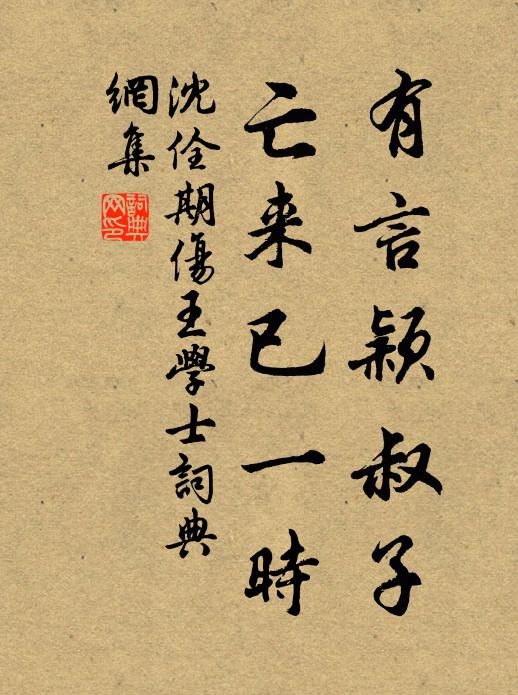 有言颖叔子
亡来已一時
沈佺期傷王學士詞典
網集
詞典
网印